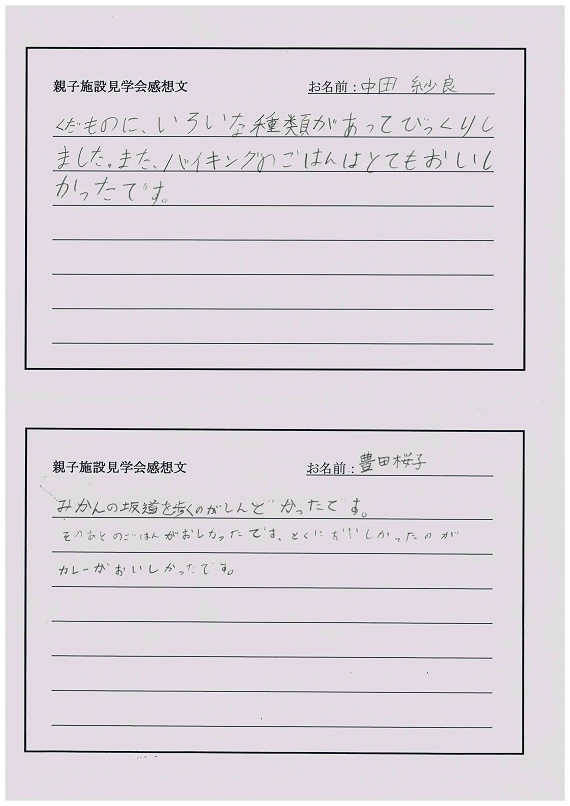 親子施設見学会感想文
お名前：中田 紗良
くだものに、いろいな種類があってびっくりし
ました。また、バイキングのごはんはとてもおいし
かったです。
親子施設見学会感想文
お名前：豊田桜子
みかんの坂道を歩くのがしんどかったです。
そのあとのごはんがおしかったです。とくにおいしかったのが
カレーがおいしかったです。